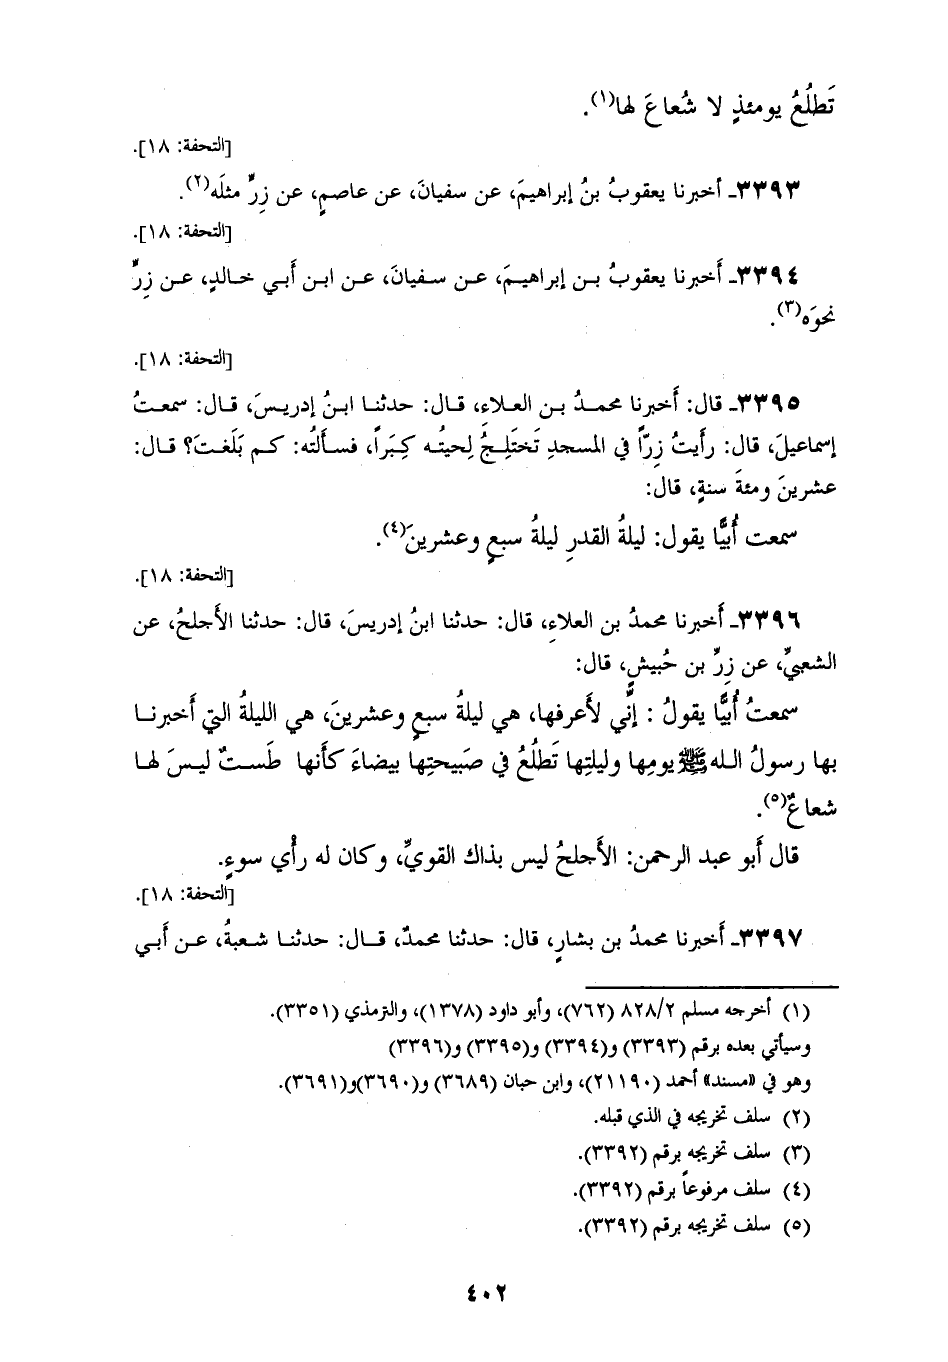 تَطلُعُ يومئذٍ لا شُعاعَ لها(١).
[التحفة: ١٨].
٣٣٩٣ـ أخبرنا يعقوبُ بنُ إبراهيمَ، عن سفيانَ، عن عاصمٍ، عن زِرٍّ مثلَه(٢).
[التحفة: ١٨].
٣٣٩٤ـ أَخبرنا يعقوبُ بـن إبراهيـمَ، عـن سـفيانَ، عـن ابـن أَبـي خـالدٍ، عـن زِرٍّ
نحوَه(٣).
[التحفة: ١٨].
٣٣٩٥ـ قال: أَخبرنا محمـدُ بـن العـلاءِ، قـال: حدثنـا ابـنُ إدريـسَ، قـال: سمعـتُ
إسماعيلَ، قال: رأَيتُ زِرّاً في المسجدِ تَختَلِـجُ لِحيتُـه كِبَـراً، فسـأَلتُه: كـم بَلَغـتَ؟ قـال:
عشرينَ ومئةَ سنةٍ، قال:
سمعت أُبيًّا يقول: ليلةُ القدرِ ليلةُ سبعٍ وعشرينَ(٤).
[التحفة: ١٨].
٣٣٩٦ـ أَخبرنا محمدُ بن العلاءِ، قال: حدثنا ابنُ إدريسَ، قال: حدثنا الأَجلحُ، عن
الشعبيِّ، عن زِرِّ بن حُبيشٍ، قال:
سمعتُ أُبيًّا يقولُ : إنّي لأَعرفها، هي ليلةُ سبعٍ وعشرينَ، هي الليلةُ التي أَخبرنـا
بها رسولُ اللـه ﷺ يومِها وليلتِها تَطلُعُ في صَبيحتِها بيضاءَ كأَنها طَستٌ ليسَ لهـا
شعاعٌ(٥).
قال أَبو عبد الرحمن: الأَجلحُ ليس بذاك القويِّ، وكان له رأْي سوءٍ.
[التحفة: ١٨].
٣٣٩٧ـ أَخبرنا محمدُ بن بشارٍ، قال: حدثنـا محمدٌ، قـال: حدثنـا شـعبةُ، عـن أَبـي
(١) أخرجه مسلم ٨٢٨/٢ (٧٦٢)، وأبو داود (١٣٧٨)، والترمذي (٣٣٥١).
وسيأتي بعده برقم (٣٣٩٣) و(٣٣٩٤) و(٣٣٩٥) و(٣٣٩٦)
وهو في «مسند» أحمد (٢١١٩٠)، وابن حبان (٣٦٨٩) و(٣٦٩٠)و(٣٦٩١).
(٢) سلف تخريجه في الذي قبله.
(٣) سلف تخريجه برقم (٣٣٩٢).
(٤) سلف مرفوعاً برقم (٣٣٩٢).
(٥) سلف تخريجه برقم (٣٣٩٢).
٤٠٢